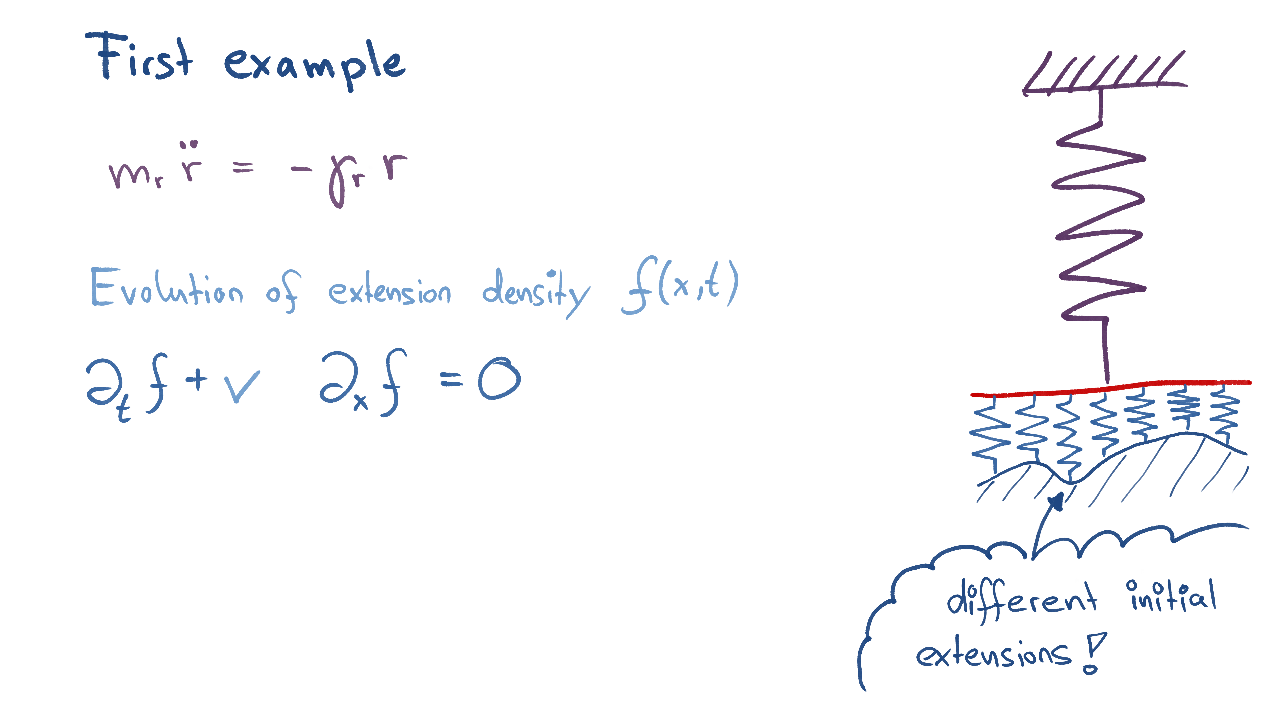 First example
mᵣ r̈ = - γᵣ r
Evolution of extension density f(x,t)
∂ₜ f + v ∂ₓ f = 0
different initial
extensions!